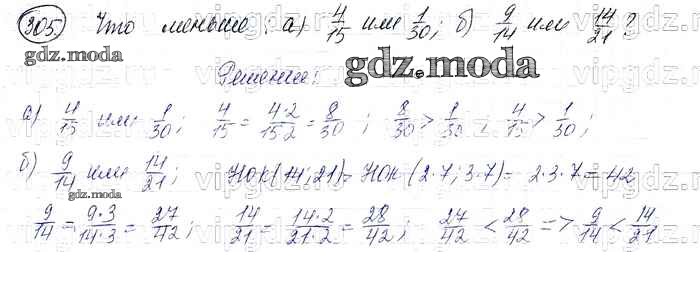 305. Что меньше: а) 4/15 или 1/30; б) 9/14 или 14/21?
gdz.moda
gdz.moda
Решение:
а) 4/15 или 1/30; 4/15 = 4·2/15·2 = 8/30; 8/30 > 1/30, 4/15 > 1/30;
б) 9/14 или 14/21; НОК(14;21) = НОК(2·7; 3·7) = 2·3·7 = 42
gdz.moda
9/14 = 9·3/14·3 = 27/42; 14/21 = 14·2/21·2 = 28/42; 27/42 < 28/42 => 9/14 < 14/21